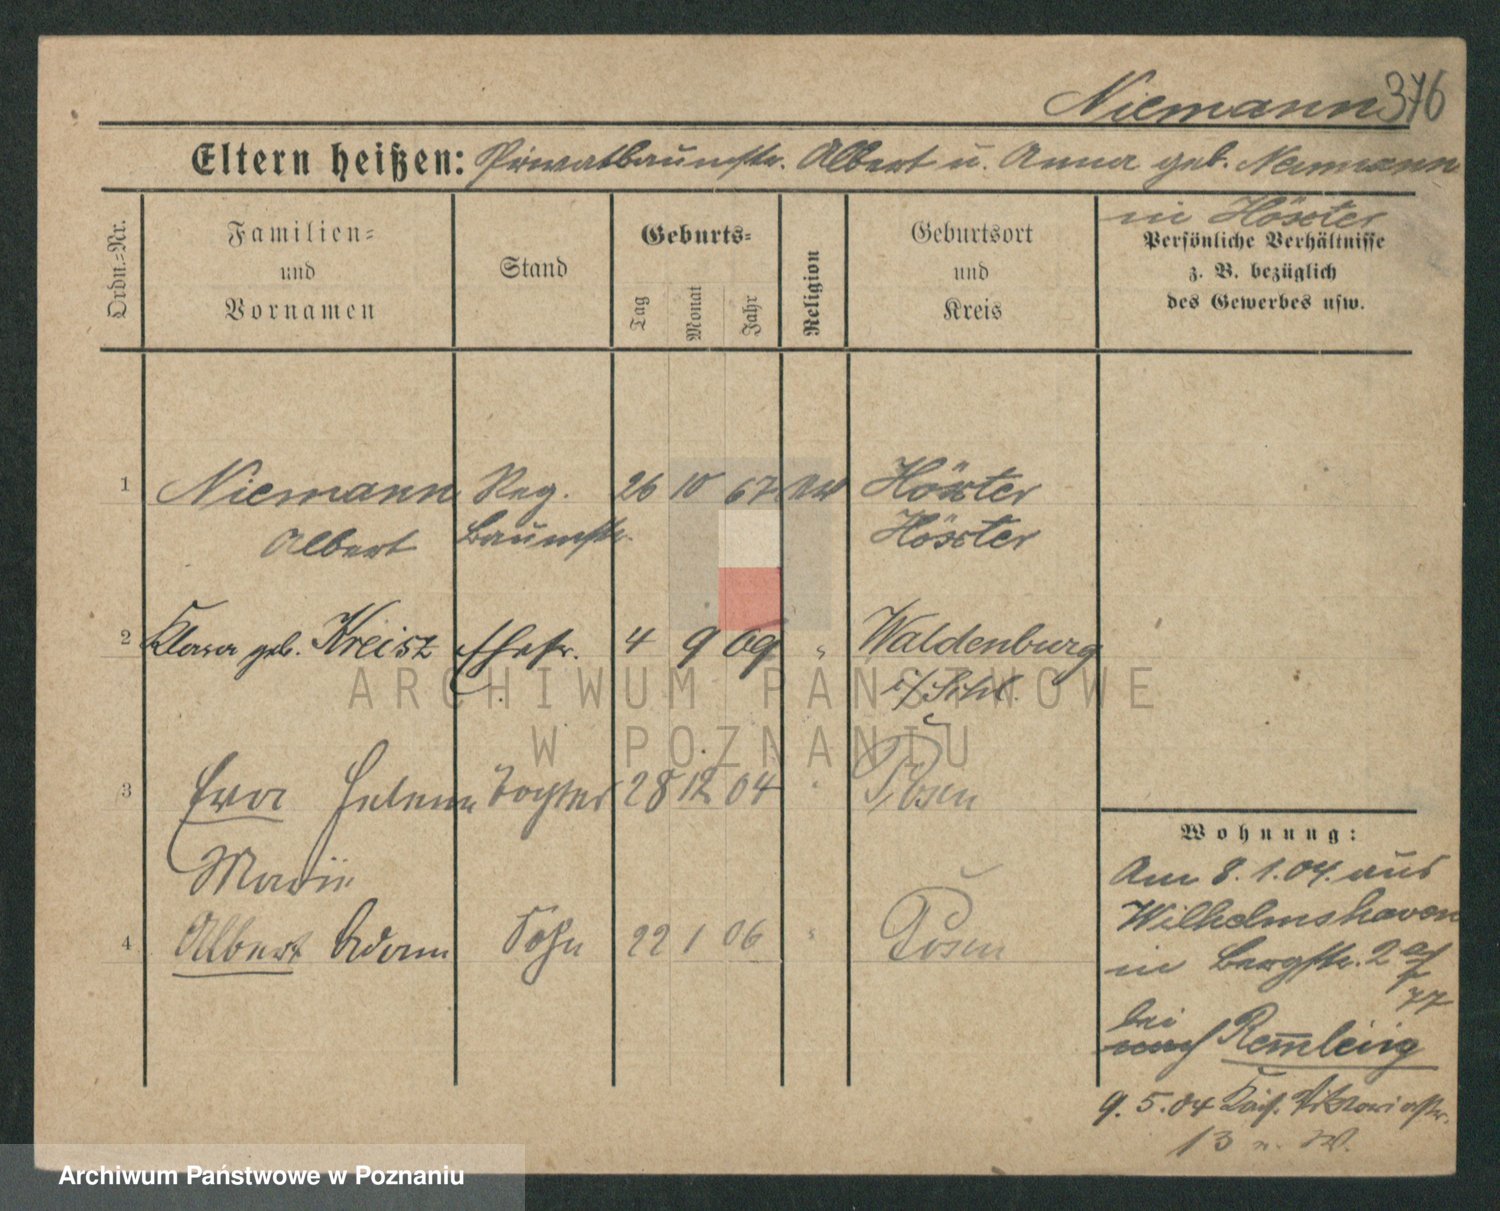 Niemann 376
Eltern heißen: Privatbaumstr. Albert u. Anna geb. Niemann
in Höxter
Ordn.-Nr.
Familien-
und
Vornamen
Stand
Geburts-
Tag
Monat
Jahr
Religion
Geburtsort
und
Kreis
Persönliche Verhältnisse
z. B. bezüglich
des Gewerbes usw.
1 Niemann Reg. 26 10 67 Höxter
Albert Baumstr. Höxter
2 Klara geb. Kreisz Ehefr. 4 9 69 " Waldenburg
i/Schl.
3 Eva Helene Tochter 28 12 04 " Posen
Marie
4 Albert Adam Sohn 22 1 06 " Posen
Wohnung:
Am 8.1.04. aus
Wilhelmshaven
in Bergstr. 2
77
bei
Remleiig
9.5.04
13 n. W.
ARCHIWUM PAŃSTWOWE
W POZNANIU
Archiwum Państwowe w Poznaniu